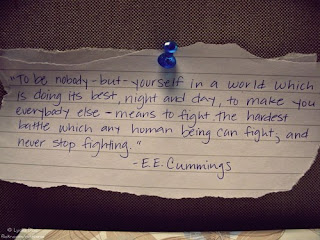 "To be nobody-but-yourself in a world which
is doing its best, night and day, to make you
everybody else - means to fight the hardest
battle which any human being can fight, and
never stop fighting."
-E.E. Cummings